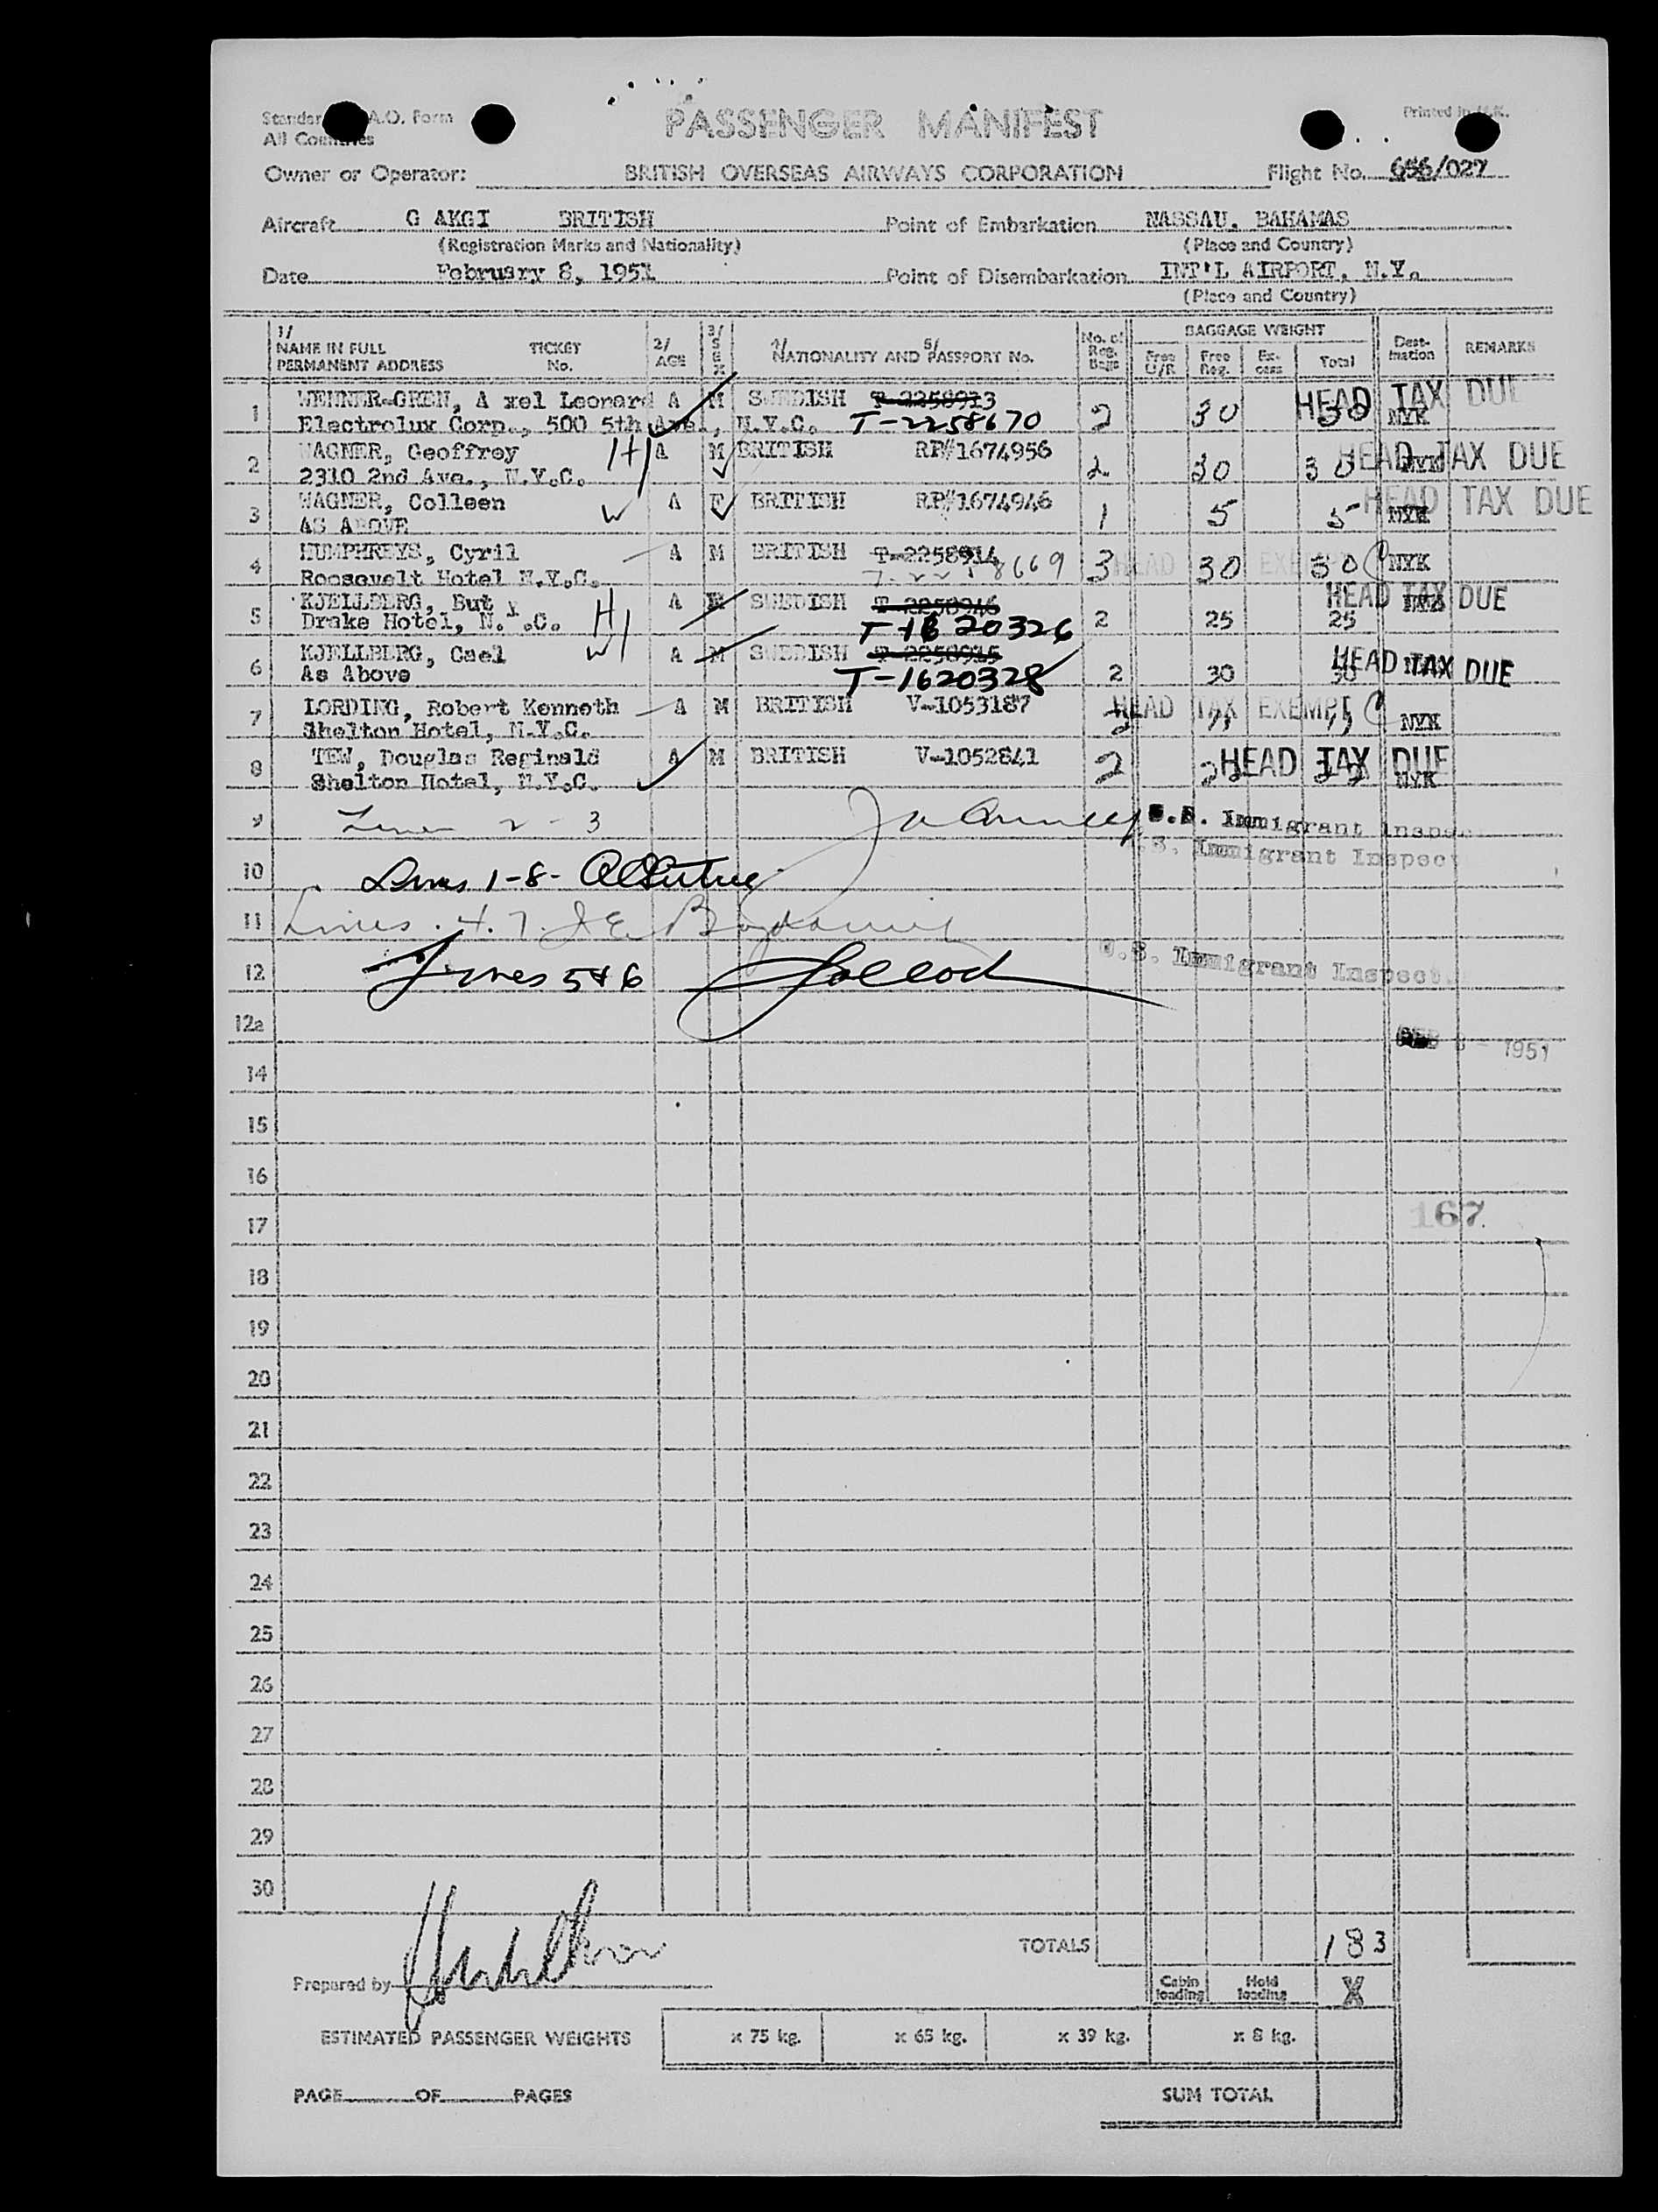 PASSENGER MANIFEST
Printed in U.K.
A.O. Form
All Countries
Owner or Operator: BRITISH OVERSEAS AIRWAYS CORPORATION Flight No. 656/027
Aircraft G AKGI BRITISH Point of Embarkation NASSAU, BAHAMAS
(Registration Marks and Nationality) (Place and Country)
Date February 8, 1951 Point of Disembarkation INT'L AIRPORT, N.Y.
(Place and Country)
1/ NAME IN FULL PERMANENT ADDRESS TICKET No. 2/ AGE 3/ SEX 4/ NATIONALITY AND 5/ PASSPORT No. No. of Reg. Bags BAGGAGE WEIGHT Free U/R Free Reg. Ex-cess Total Dest-ination REMARKS
1 WENNER-GREN, A xel Leonard A M SWEDISH T-2258913 HEAD TAX DUE
Electrolux Corp., 500 5th Ave., N.Y.C. T-2258670 2 30 30 NYK
2 WAGNER, Geoffrey H A M BRITISH RP#1674956 HEAD TAX DUE
2310 2nd Ave., N.Y.C. 2 30 30 NYK
3 WAGNER, Colleen W A F BRITISH RP#1674946 HEAD TAX DUE
AS ABOVE 1 5 5 NYK
4 HUMPHREYS, Cyril A M BRITISH T-2258914 HEAD EXEMPT
Roosevelt Hotel N.Y.C. T-2258669 3 30 30 NYK
5 KJELLBERG, But y H A SWEDISH T-2258946 HEAD TAX DUE
Drake Hotel, N. .C. T-1620326 2 25 25
6 KJELLBERG, Cael W A M SWEDISH T-2258915 HEAD TAX DUE
As Above T-1620328 2 30 30
7 LORDING, Robert Kenneth A M BRITISH V-1053187 HEAD TAX EXEMPT
Shelton Hotel, N.Y.C. NYK
8 TEW, Douglas Reginald A M BRITISH V-1052841 HEAD TAX DUE
Shelton Hotel, N.Y.C. 2 22 22 NYK
9 Lines 2 - 3 U.S. Immigrant Inspec
S. Immigrant Inspect
10 Lines 1-8-
11 Lines. 4. 7.
12 Lines 5 & 6 U.S. Immigrant Inspect.
12a FEB 8 - 1951
14
15
16
17 167
18
19
20
21
22
23
24
25
26
27
28
29
30
TOTALS 183
Prepared by
Cabin loading Hold loading X
ESTIMATED PASSENGER WEIGHTS x 75 kg. x 65 kg. x 39 kg. x 8 kg.
PAGE OF PAGES SUM TOTAL